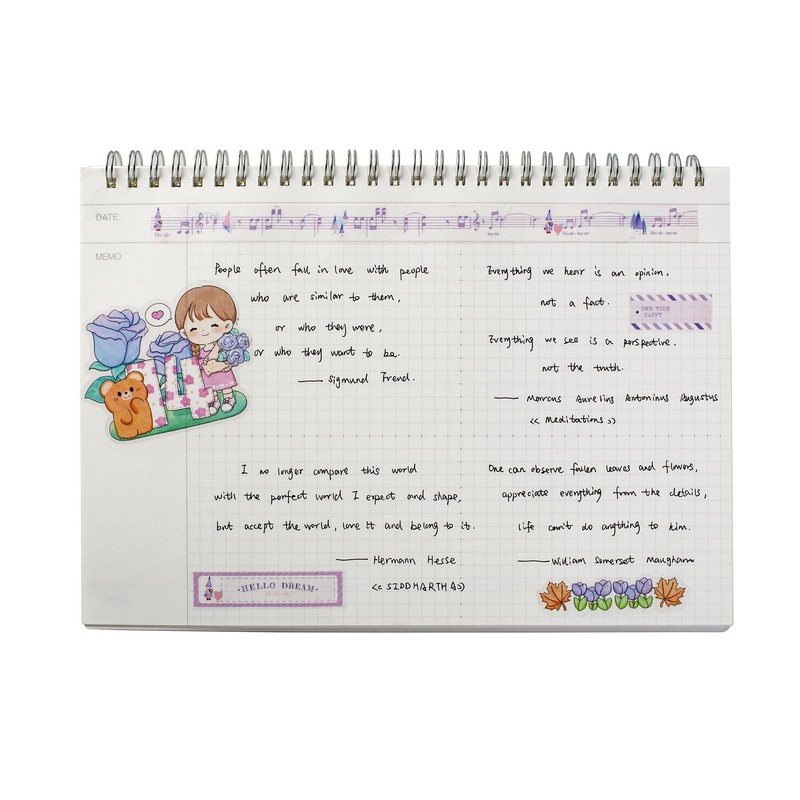 DATE:
MEMO
People often fall in love with people
who are similar to them,
or who they were,
or who they want to be.
—— Sigmund Frend.
Everything we hear is an opinion,
not a fact.
OWN YOUR
HAPPY
Everything we see is a perspective.
not the truth.
—— Marcus Aurelius Antoninus Augustus
<< Meditations >>
I no longer compare this world
with the perfect world I expect and shape,
but accept the world, love it and belong to it.
—— Hermann Hesse
<< SIDDHARTHAS>
·HELLO DREAM·
One can observe fallen leaves and flowers,
appreciate everything from the details,
life can't do anything to him.
—— William Somerset Maugham